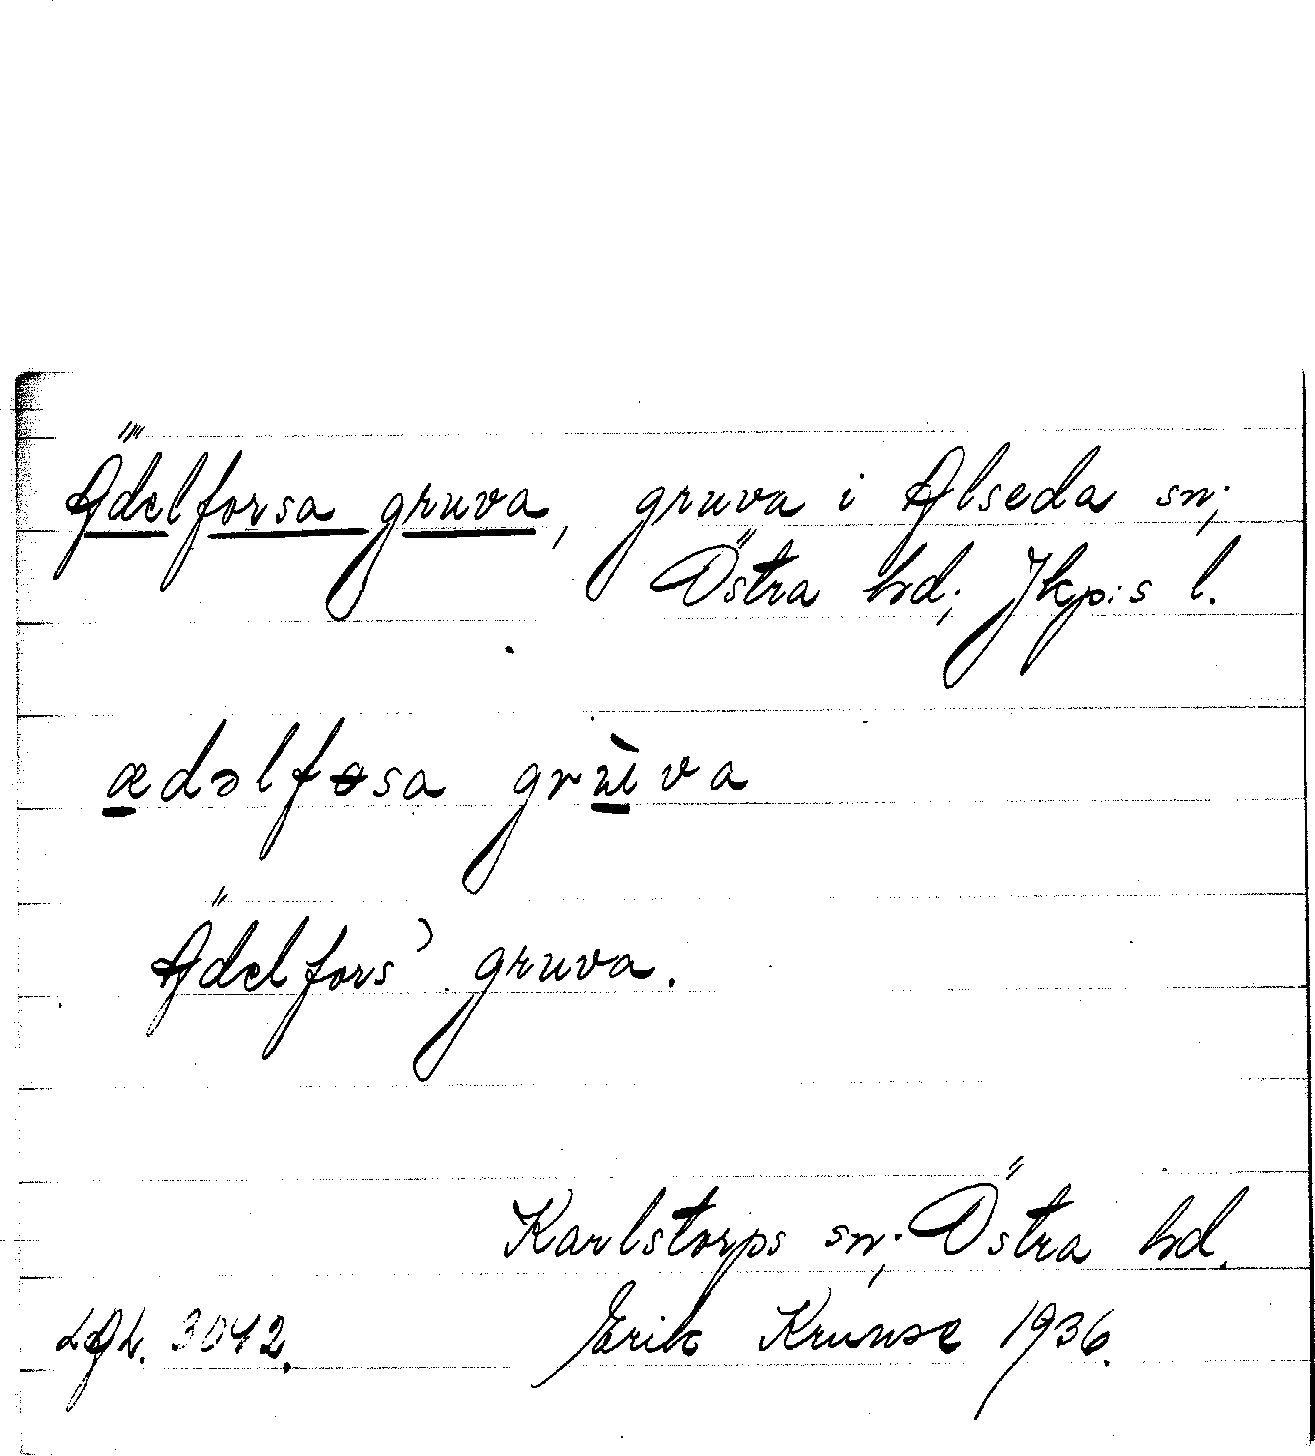 Ädelforsa gruva, gruva i Alseda sn;
Östra hd; Jkp:s l.
ædəlfɵsa grùva
Ädelfors' gruva.
Karlstorps sn; Östra hd.
LAL. 3042. Erik Krunse 1936.